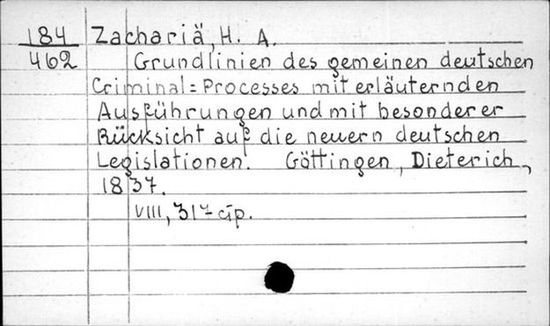 184 Zachariä, H. A.
462 Grundlinien des gemeinen deutschen
Criminal=Processes mit erläuternden
Ausführungen und mit besonderer
Rücksicht auf die neuern deutschen
Legislationen. Göttingen, Dieterich,
1837.
VIII, 317 стр.